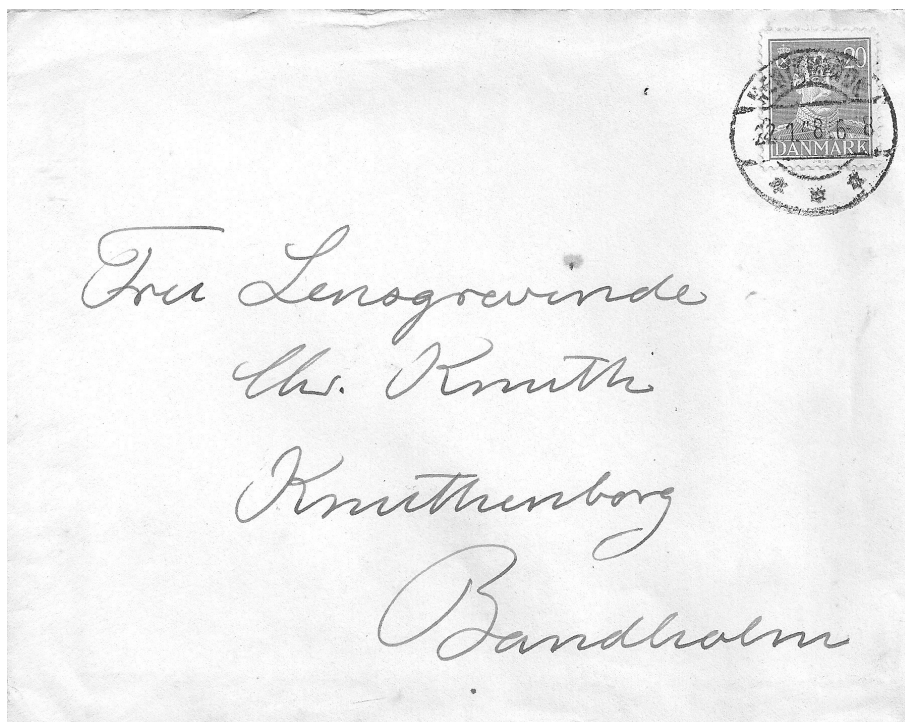 20
22.1.48.6-8
DANMARK
Fru Lensgrevinde
Chr. Knuth
Knuthenborg
Bandholm